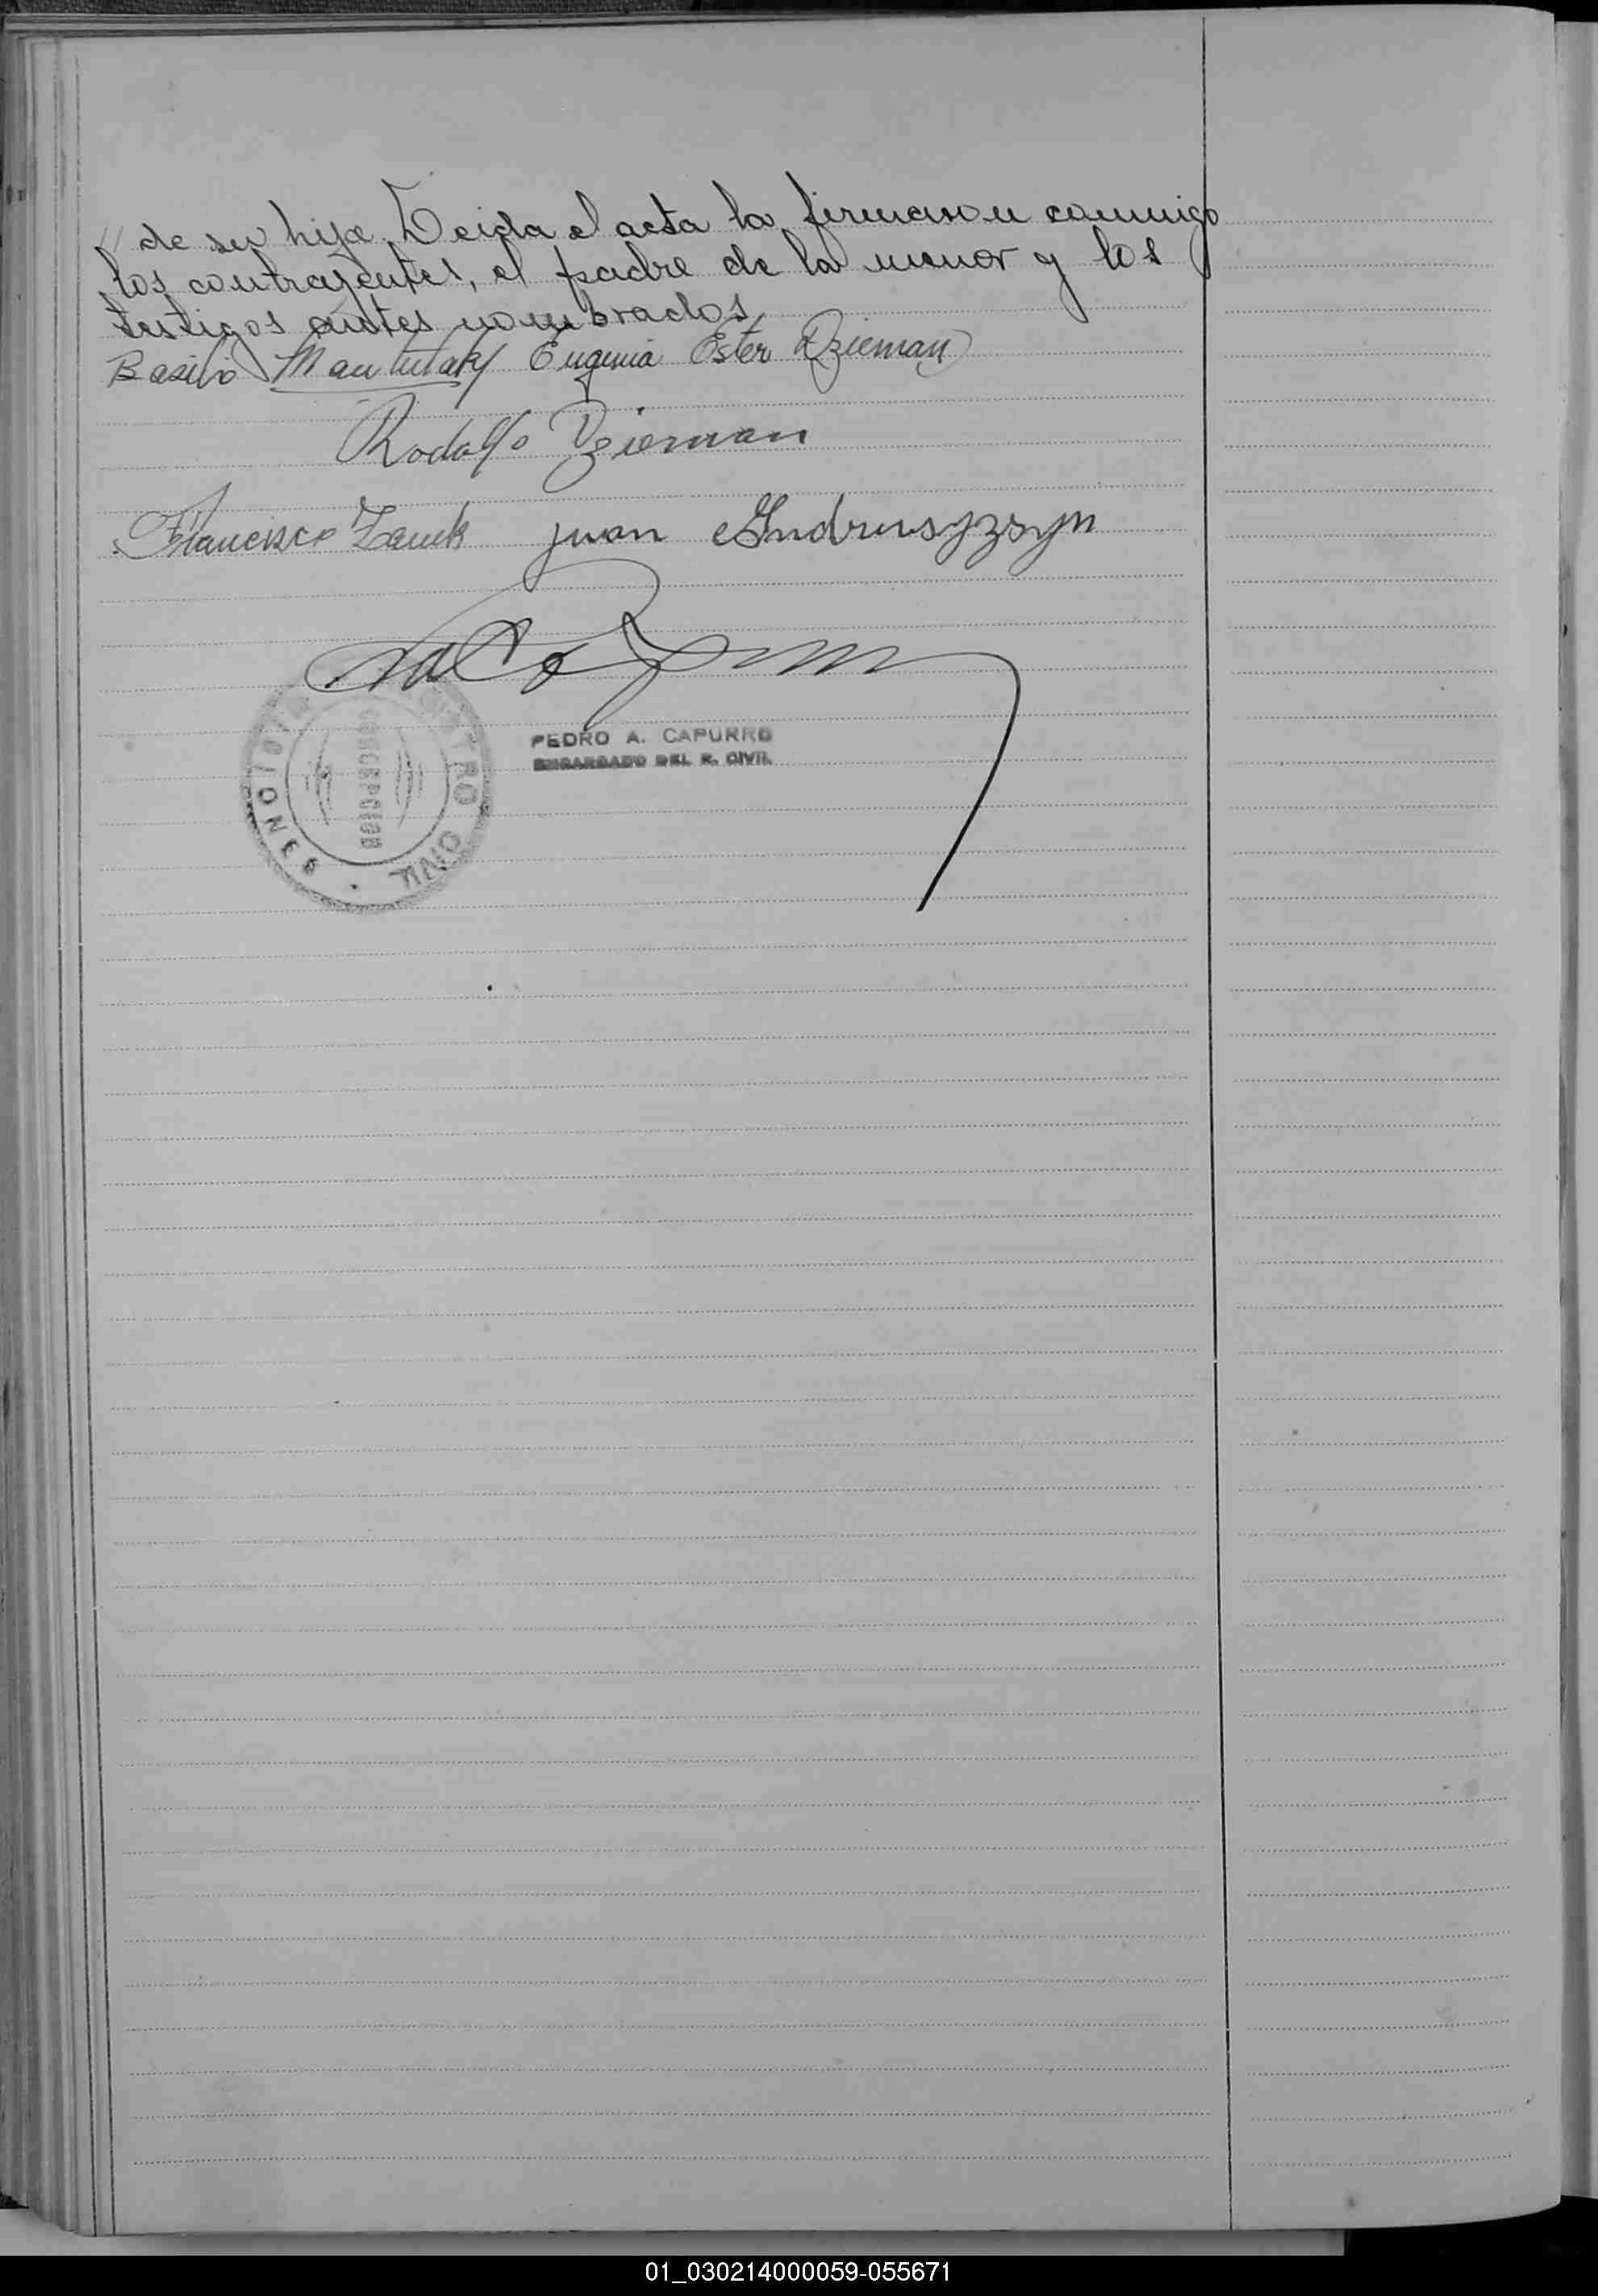 // de su hija. Leida el acta la firmaron conmigo
los contrayentes, el padre de la menor y los
testigos antes nombrados
Basilio Eugenia Ester Dzieman
Rodolfo Dzieman
Francisco Zauk juan Andrusyzsyn
PEDRO A. CAPURRO
ENCARGADO DEL R. CIVIL
REGISTRO CIVIL · MISIONES
CONCEPCION
01_030214000059-055671